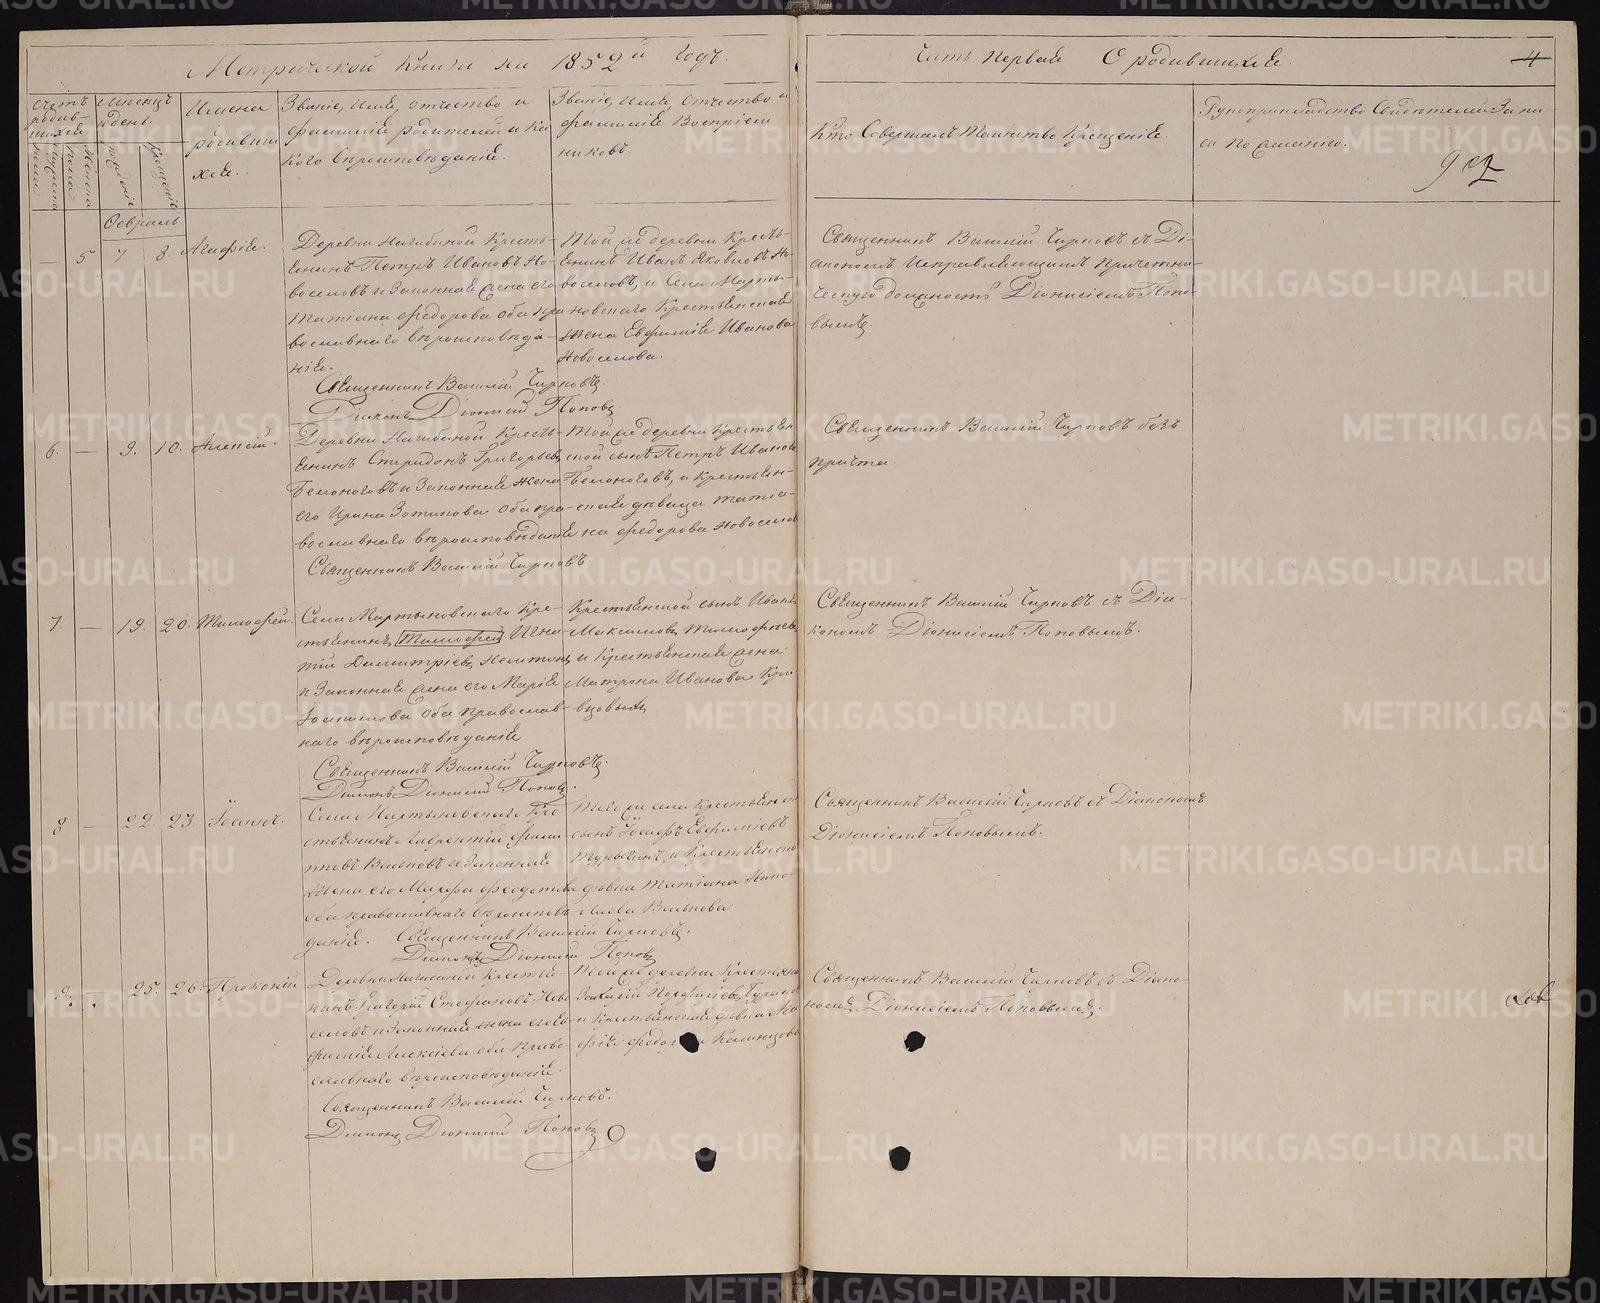 Метрической Книги на 1852й Годъ.
Часть Первая О родившихся.
4
Счетъ родив-
шихся
Мѣсяцъ
и день.
Имена
родивши
хся.
Званіе, Имя, отчество и
фамилія родителей и ка
кого вѣроисповѣданія.
Званіе, Имя, Отчество и
фамилія Воспріем
никовъ.
Кто Совершалъ Таинство Крещенія.
Рукоприкладство Свидѣтелей Запи-
си по желанію.
Февраль
— 5 7 8. Агафія.
Деревни Нагибиной Кресть-
янинъ Петръ Ивановъ Но-
воселовъ и Законная жена его
Татіана Федорова оба пра
вославнаго вѣроисповѣда-
нія.
Священникъ Василій Чирковъ.
Діаконъ Діонисій Поповъ.
Той же деревни Кресть-
янинъ Иванъ Яковлевъ Но-
воселовъ, и Села Марты-
новскаго Крестьянская
Жена Евфимія Иванова
Новоселова.
Священникъ Василій Чирковъ съ Ді-
акономъ Исправляющимъ Причетни-
ческую должность Діонисіемъ Попо-
вымъ.
6. — 9. 10. Алексій.
Деревни Нагибиной Кресть-
янинъ Спиридонъ Григорьевъ
Белоноговъ и Законная жена
его Ирина Зотикова Оба пра-
вославнаго вѣроисповѣданія
Священникъ Василій Чирковъ.
Той же деревни Крестьян
ской сынъ Петръ Ивановъ
Белоноговъ, и крестьян-
ская дѣвица Татіа-
на Федорова Новоселов
Священникъ Василій Чирковъ безъ
причта.
7. — 19. 20. Тимофей.
Села Мартыновскаго Кре-
стьянинъ Тимофей Игна
тій Димитріевъ
и Законная жена его Марія
Іоакимова Оба православ-
наго вѣроисповѣданія
Священникъ Василій Чирковъ.
Діаконъ Діонисій Поповъ.
Крестьянской сынъ Иванъ
Максимовъ Тимофѣевъ
и Крестьянская жена
Матрона Иванова Кри
вцовыхъ
Священникъ Василій Чирковъ съ Діа-
кономъ Діонисіемъ Поповымъ.
8 — 22 23 Іоаннъ.
Села Мартыновскаго Кре
стьянинъ Лаврентій Фили
пповъ Вальковъ и Законная
Жена его Марфа Феодотова
оба православнаго вѣроиспов-
данія. Священникъ Василій Чирковъ.
Діаконъ Діонисій Поповъ
Того же села Крестьянск
сынъ Іосафъ Евфиміевъ
и Крестьянска
дѣвка Татіана Нико-
лаева Валькова
Священникъ Василій Чирковъ съ Діакономъ
Діонисіемъ Поповымъ.
9. 25. 26. Прокопій
Деревни Нагибиной Крестья-
нинъ Григорій Стефановъ Ново
селовъ и Законная жена его Ев-
фимія Алексіева оба право-
славнаго вѣроисповѣданія.
Священникъ Василій Чирковъ.
Діаконъ Діонисій Поповъ
Той же деревни Крестьяни
Порфиріевъ
и Крестьянская дѣвка Ага
фія Федорова
Священникъ Василій Чирковъ съ Діако-
номъ Діонисіемъ Поповымъ.
METRIKI.GASO-URAL.RU